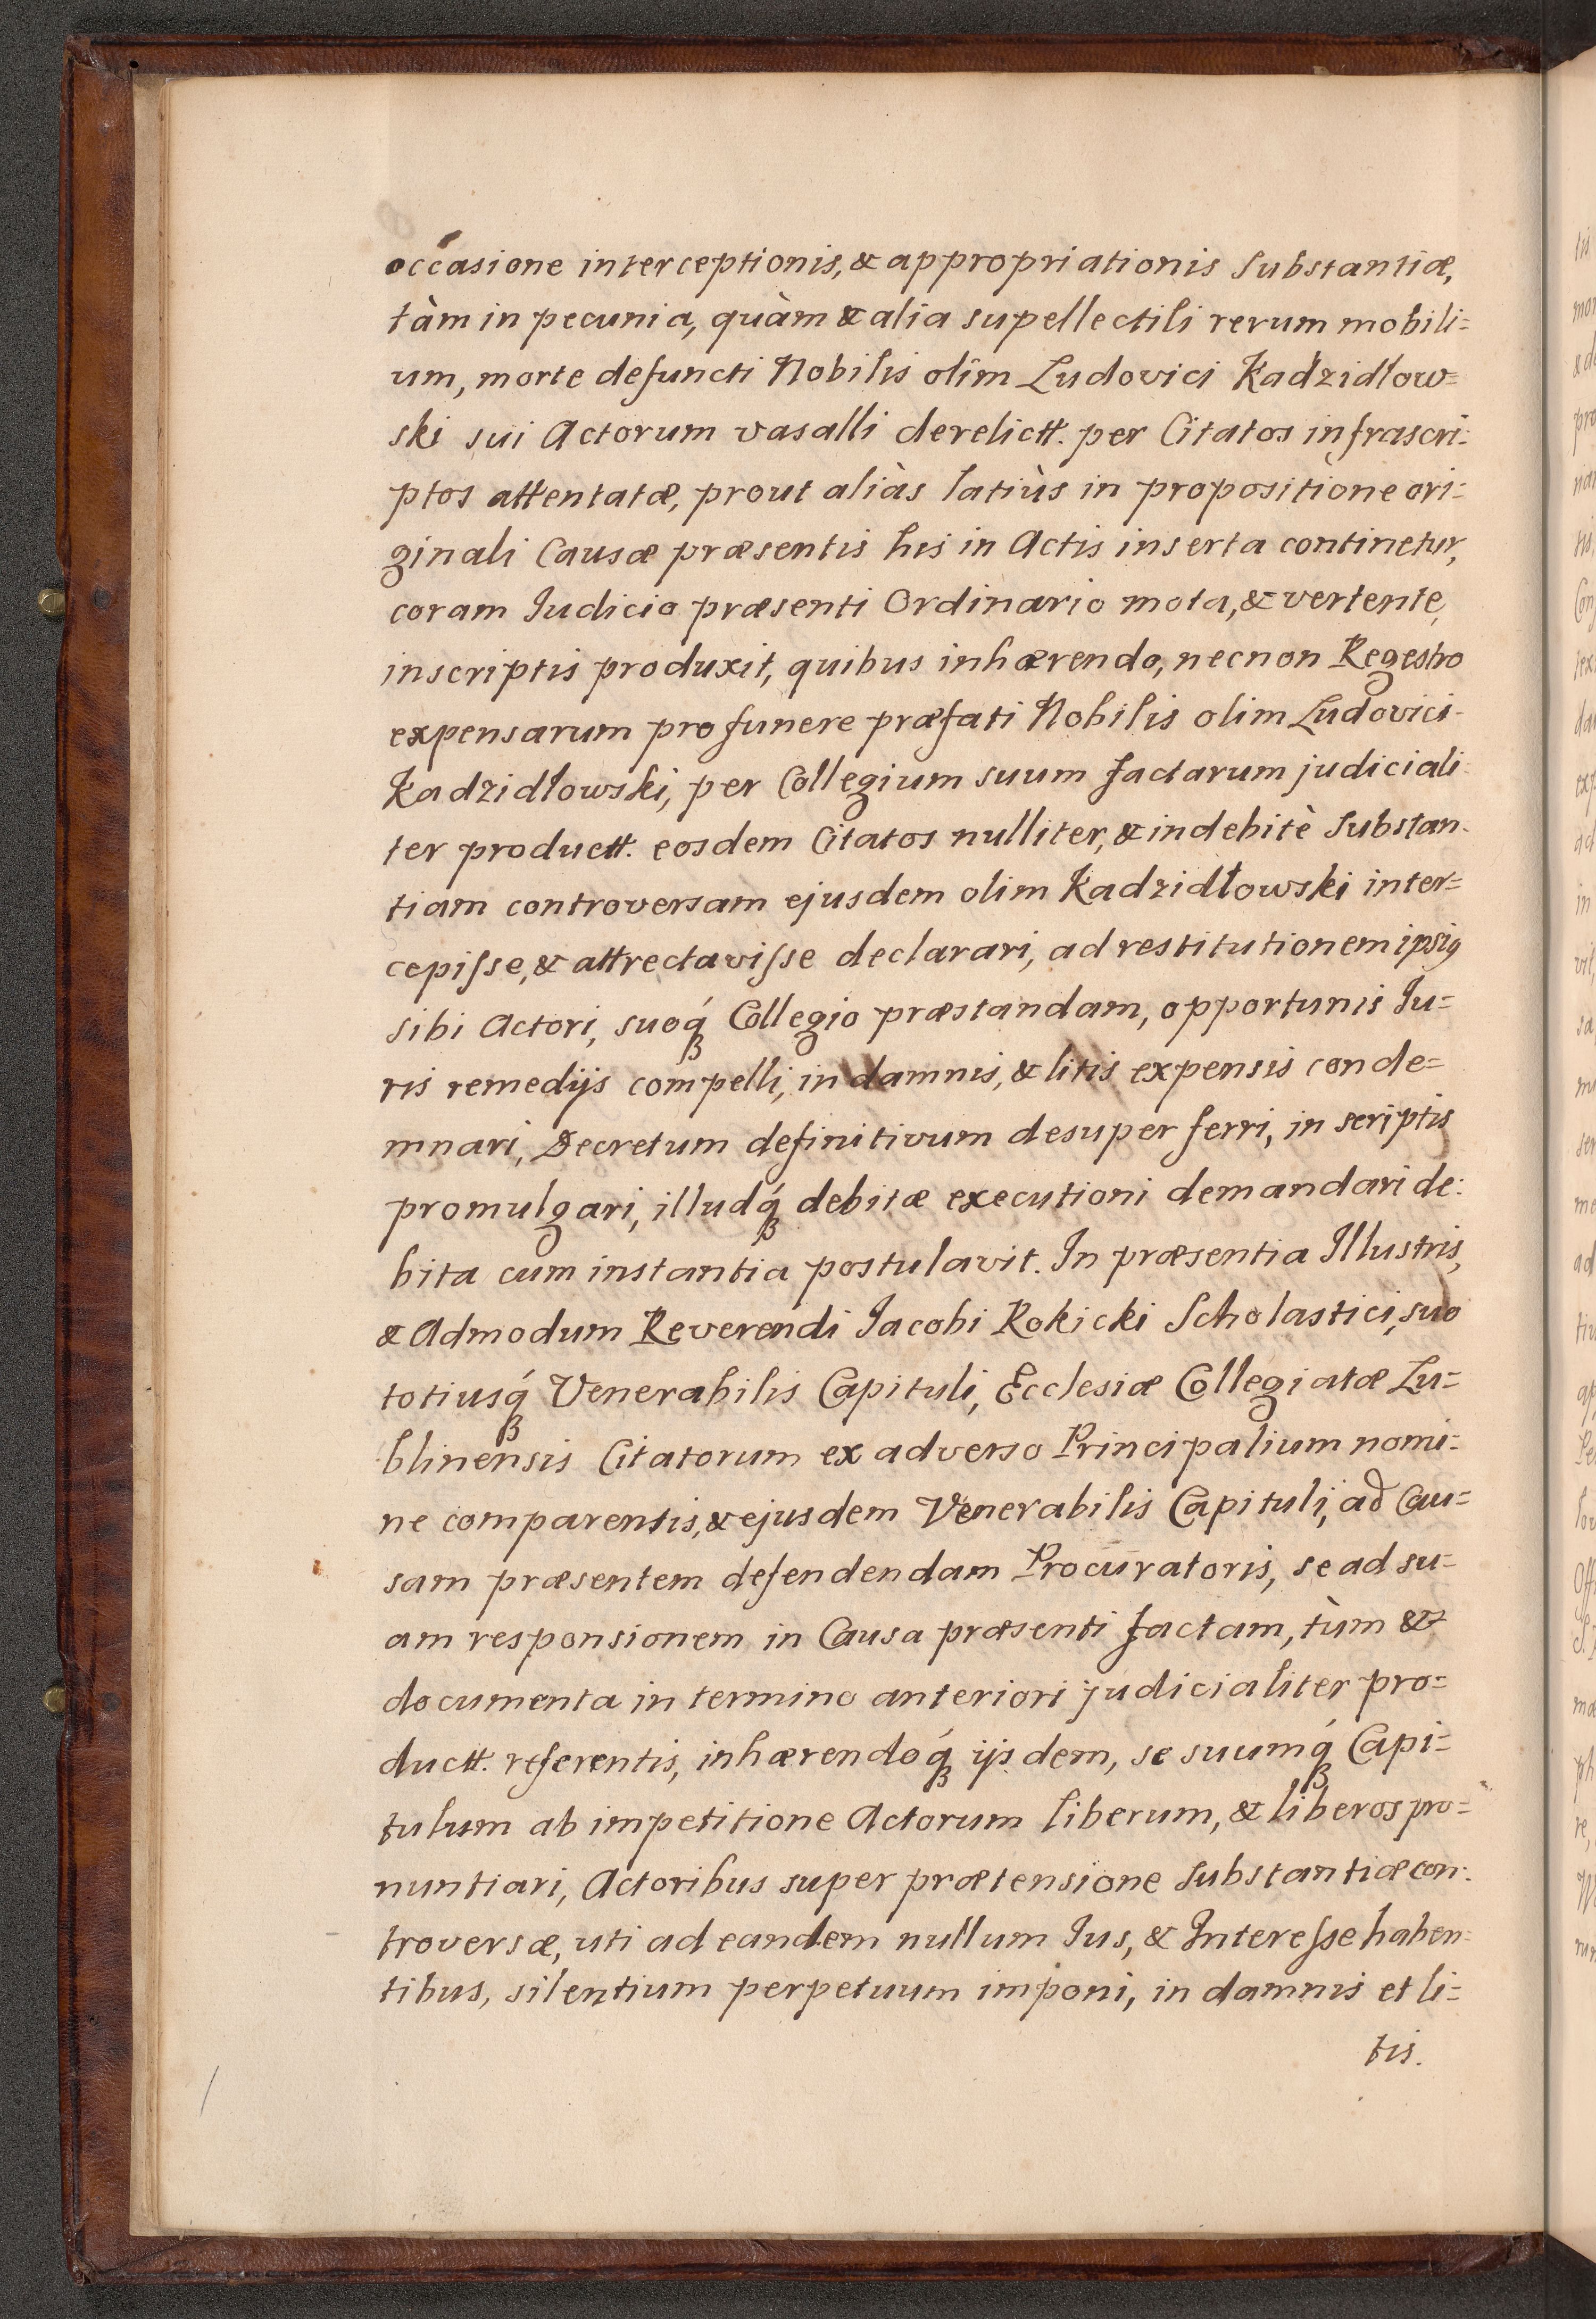 occasione interceptionis, & appropriationis Substantiæ,
tàm in pecunia, quàm & alia supellectili rerum mobili=
um, morte defuncti Nobilis olim Ludovici Kadzidłow=
ski sui Actorum vasalli derelictt. per Citatos infrascri=
ptos attentatæ, prout aliàs latiùs in propositione ori=
ginali Causæ præsentis his in Actis inserta continetur,
coram Iudicio præsenti Ordinario mota, & vertente,
inscriptis produxit, quibus inhærendo, necnon Regestro
expensarum pro funere præfati Nobilis olim Ludovici
Kadzidłowski, per Collegium suum factarum judiciali=
ter productt. eosdem Citatos nulliter, & indebitè Substan=
tiam controversam ejusdem olim Kadzidłowski inter=
cepiſse, & attrectaviſse declarari, ad restitutionem ipsiꝯ
sibi Actori, suoq́ꝫ Collegio præstandam, opportunis Iu=
ris remedijs compelli, in damnis, & litis expensis conde=
mnari, Decretum definitivum desuper ferri, in scriptis
promulgari, illudq́ꝫ debitæ executioni demandari de=
bita cum instantia postulavit. In præsentia Illustris,
& Admodum Reverendi Iacobi Rokicki Scholastici, suo
totiusq́ꝫ Venerabilis Capituli, Ecclesiæ Collegiatæ Lu=
blinensis Citatorum ex adverso Principalium nomi=
ne comparentis, & ejusdem Venerabilis Capituli, ad Cau=
sam præsentem defendendam Procuratoris, se ad su=
am responsionem in Causa præsenti factam, tùm &
documenta in termino anteriori judicialiter pro=
ductt. referentis, inhærendoq́ꝫ ijsdem, se suumq́ꝫ Capi=
tulum ab impetitione Actorum liberum, & liberos pro=
nuntiari, Actoribus super prætensione Substantiæ con=
troversæ, uti ad eandem nullum Ius, & Intereſse haben=
tibus, silentium perpetuum imponi, in damnis et li=
tis.